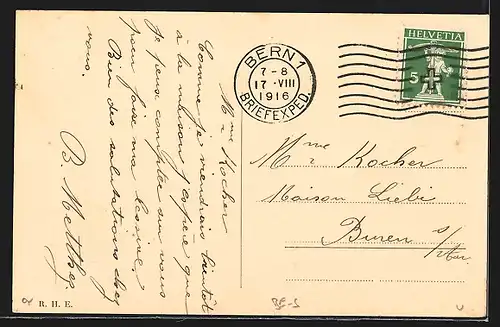 Mme Kocher
Comme je viendrais bientôt
à la maison j'espère que
je peux compter sur vous
pour faire ma lessive.
Bien des salutations chez
vous.
B. Metthez
R. H. E.
BERN 1
7-8
17·VIII
1916
BRIEFEXPED.
HELVETIA
5
Mme Kocher
Maison Liebi
Buren s/Aar.
BE-S